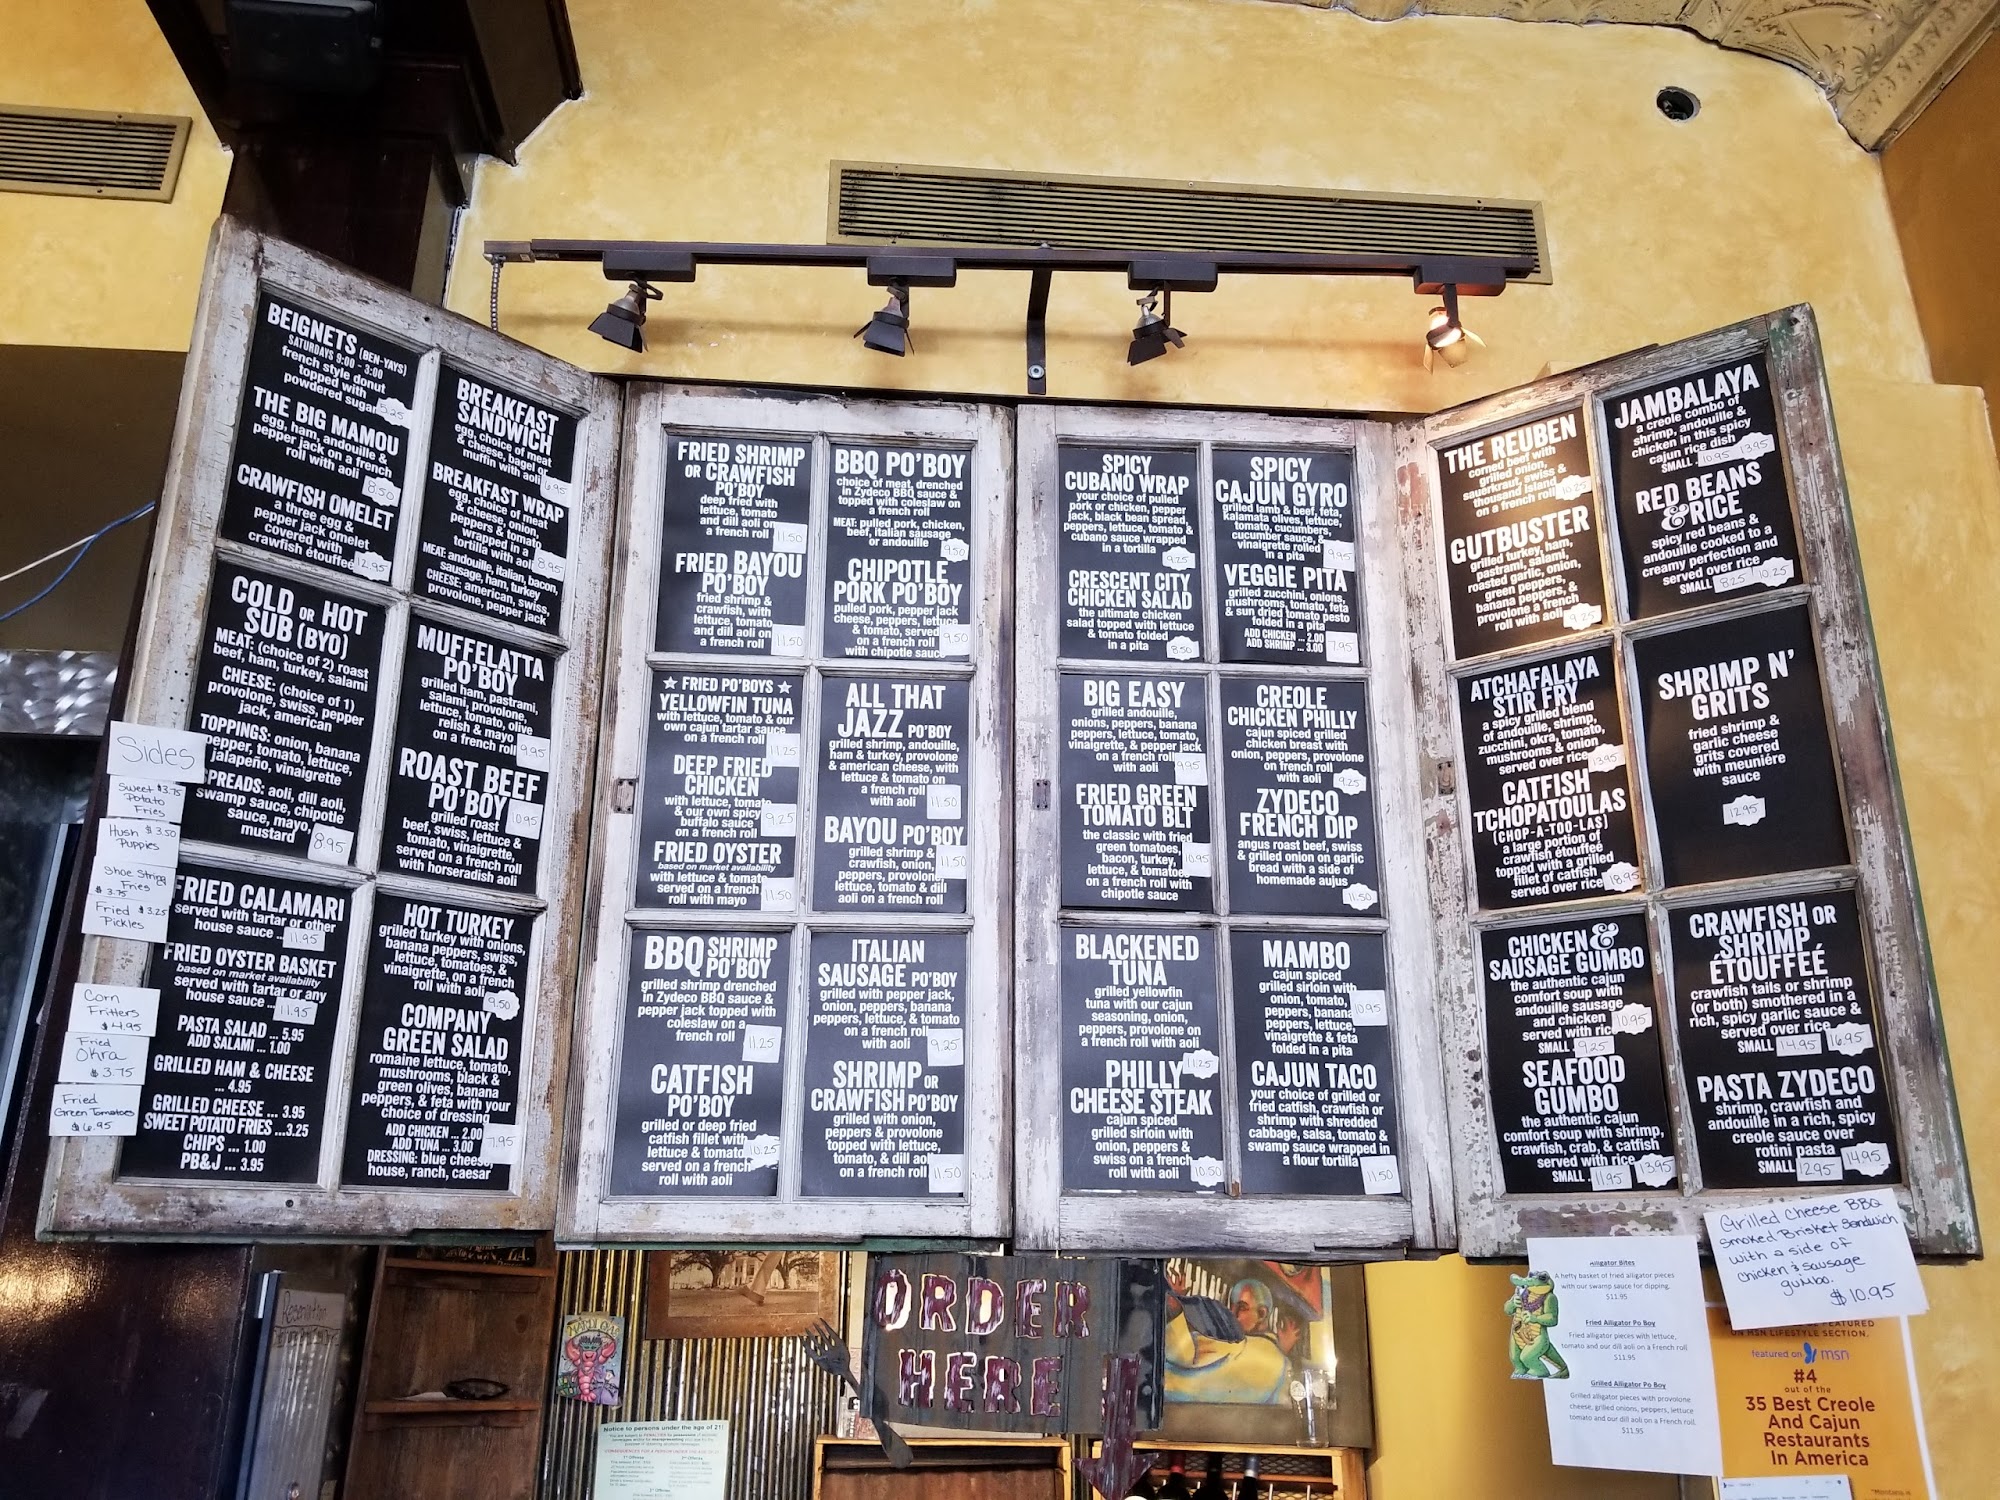 BEIGNETS (BEN-YAYS)
SATURDAYS 9:00 - 3:00
french style donut
topped with
powdered sugar
5.25
THE BIG MAMOU
egg, ham, andouille &
pepper jack on a french
roll with aoli
8.50
CRAWFISH OMELET
a three egg &
pepper jack omelet
covered with
crawfish étouffeé
12.95
BREAKFAST
SANDWICH
egg, choice of meat
& cheese, bagel or
muffin with aoli
6.95
BREAKFAST WRAP
egg, choice of meat
& cheese, onion,
peppers & tomato
wrapped in a
tortilla with aoli
8.95
MEAT: andouille, italian, bacon,
sausage, ham, turkey
CHEESE: american, swiss,
provolone, pepper jack
COLD OR HOT
SUB (BYO)
MEAT: (choice of 2) roast
beef, ham, turkey, salami
CHEESE: (choice of 1)
provolone, swiss, pepper
jack, american
TOPPINGS: onion, banana
pepper, tomato, lettuce,
jalapeño, vinaigrette
SPREADS: aoli, dill aoli,
swamp sauce, chipotle
sauce, mayo,
mustard
8.95
MUFFELATTA
PO'BOY
grilled ham, pastrami,
salami, provolone,
lettuce, tomato, olive
relish & mayo
on a french roll
9.95
ROAST BEEF
PO'BOY
10.95
grilled roast
beef, swiss, lettuce,
tomato, vinaigrette,
served on a french roll
with horseradish aoli
FRIED CALAMARI
served with tartar or other
house sauce ..
11.95
FRIED OYSTER BASKET
based on market availability
served with tartar or any
house sauce ....
11.95
PASTA SALAD ... 5.95
ADD SALAMI ... 1.00
GRILLED HAM & CHEESE
... 4.95
GRILLED CHEESE ... 3.95
SWEET POTATO FRIES ...3.25
CHIPS ... 1.00
PB&J ... 3.95
HOT TURKEY
grilled turkey with onions,
banana peppers, swiss,
lettuce, tomatoes, &
vinaigrette, on a french
roll with aoli
9.50
COMPANY
GREEN SALAD
romaine lettuce, tomato,
mushrooms, black &
green olives, banana
peppers, & feta with your
choice of dressing
ADD CHICKEN ... 2.00
ADD TUNA ... 3.00
7.95
DRESSING: blue cheese,
house, ranch, caesar
Sides
Sweet $3.75
Potato
Fries
Hush $3.50
Puppies
Shoe String
Fries
$3.75
Fried $3.25
Pickles
Corn
Fritters
$4.95
Fried
Okra
$3.75
Fried
Green Tomatoes
$6.95
FRIED SHRIMP
OR CRAWFISH
PO'BOY
deep fried with
lettuce, tomato
and dill aoli on
a french roll
11.50
FRIED BAYOU
PO'BOY
fried shrimp &
crawfish, with
lettuce, tomato
and dill aoli on
a french roll
11.50
BBQ PO'BOY
choice of meat, drenched
in Zydeco BBQ sauce &
topped with coleslaw on
a french roll
MEAT: pulled pork, chicken,
beef, italian sausage
or andouille
9.50
CHIPOTLE
PORK PO'BOY
pulled pork, pepper jack
cheese, peppers, lettuce
& tomato, served
on a french roll
with chipotle sauce
9.50
★ FRIED PO'BOYS ★
YELLOWFIN TUNA
with lettuce, tomato & our
own cajun tartar sauce
on a french roll
11.25
DEEP FRIED
CHICKEN
with lettuce, tomato
& our own spicy
buffalo sauce
on a french roll
9.25
FRIED OYSTER
based on market availability
with lettuce & tomato
served on a french
roll with mayo
11.50
ALL THAT
JAZZ PO'BOY
grilled shrimp, andouille,
ham & turkey, provolone
& american cheese, with
lettuce & tomato on
a french roll
with aoli
11.50
BAYOU PO'BOY
grilled shrimp &
crawfish, onion,
peppers, provolone,
lettuce, tomato & dill
aoli on a french roll
11.50
BBQ SHRIMP
PO'BOY
grilled shrimp drenched
in Zydeco BBQ sauce &
pepper jack topped with
coleslaw on a
french roll
11.25
CATFISH
PO'BOY
grilled or deep fried
catfish fillet with
lettuce & tomato
served on a french
roll with aoli
10.25
ITALIAN
SAUSAGE PO'BOY
grilled with pepper jack,
onion, peppers, banana
peppers, lettuce, & tomato
on a french roll
with aoli
9.25
SHRIMP OR
CRAWFISH PO'BOY
grilled with onion,
peppers & provolone
topped with lettuce,
tomato, & dill aoli
on a french roll
11.50
SPICY
CUBANO WRAP
your choice of pulled
pork or chicken, pepper
jack, black bean spread,
peppers, lettuce, tomato &
cubano sauce wrapped
in a tortilla
9.25
CRESCENT CITY
CHICKEN SALAD
the ultimate chicken
salad topped with lettuce
& tomato folded
in a pita
8.50
SPICY
CAJUN GYRO
grilled lamb & beef, feta,
kalamata olives, lettuce,
tomato, cucumbers,
cucumber sauce, &
vinaigrette rolled
in a pita
9.95
VEGGIE PITA
grilled zucchini, onions,
mushrooms, tomato, feta
& sun dried tomato pesto
folded in a pita
ADD CHICKEN ... 2.00
ADD SHRIMP ... 3.00
7.95
BIG EASY
grilled andouille,
onions, peppers, banana
peppers, lettuce, tomato,
vinaigrette, & pepper jack
on a french roll
with aoli
9.95
FRIED GREEN
TOMATO BLT
the classic with fried
green tomatoes,
bacon, turkey,
lettuce, & tomatoes
on a french roll with
chipotle sauce
10.95
CREOLE
CHICKEN PHILLY
cajun spiced grilled
chicken breast with
onion, peppers, provolone
on a french roll
with aoli
9.25
ZYDECO
FRENCH DIP
angus roast beef, swiss
& grilled onion on garlic
bread with a side of
homemade aujus
11.50
BLACKENED
TUNA
grilled yellowfin
tuna with our cajun
seasoning, onion,
peppers, provolone on
a french roll with aoli
11.25
PHILLY
CHEESE STEAK
cajun spiced
grilled sirloin with
onion, peppers &
swiss on a french
roll with aoli
10.50
MAMBO
cajun spiced
grilled sirloin with
onion, tomato,
peppers, banana
peppers, lettuce,
vinaigrette & feta
folded in a pita
10.95
CAJUN TACO
your choice of grilled or
fried catfish, crawfish or
shrimp with shredded
cabbage, salsa, tomato &
swamp sauce wrapped in
a flour tortilla
11.50
THE REUBEN
corned beef with
grilled onion,
sauerkraut, swiss &
thousand island
on a french roll
10.25
GUTBUSTER
grilled turkey, ham,
pastrami, salami,
roasted garlic, onion,
green peppers,
banana peppers, &
provolone a french
roll with aoli
9.25
JAMBALAYA
a creole combo of
shrimp, andouille &
chicken in this spicy
cajun rice dish
SMALL .. 10.95 13.95
RED BEANS
& RICE
spicy red beans &
andouille cooked to a
creamy perfection and
served over rice
SMALL 8.25 10.25
ATCHAFALAYA
STIR FRY
a spicy grilled blend
of andouille, shrimp,
zucchini, okra, tomato,
mushrooms & onion
served over rice
13.95
CATFISH
TCHOPATOULAS
(CHOP-A-TOO-LAS)
a large portion of
crawfish étouffeé
topped with a grilled
fillet of catfish
served over rice
18.95
SHRIMP N'
GRITS
fried shrimp &
garlic cheese
grits covered
with meuniére
sauce
12.95
CHICKEN &
SAUSAGE GUMBO
the authentic cajun
comfort soup with
andouille sausage
and chicken
served with rice
10.95
SMALL 9.25
SEAFOOD
GUMBO
the authentic cajun
comfort soup with shrimp,
crawfish, crab, & catfish
served with rice
SMALL .. 11.95 13.95
CRAWFISH OR
SHRIMP
ÉTOUFFEÉ
crawfish tails or shrimp
(or both) smothered in a
rich, spicy garlic sauce &
served over rice
SMALL 14.95 16.95
PASTA ZYDECO
shrimp, crawfish and
andouille in a rich, spicy
creole sauce over
rotini pasta
SMALL 12.95 14.95
Grilled Cheese BBQ
Smoked Brisket Sandwich
with a side of
chicken & sausage
gumbo.
$10.95
Alligator Bites
A hefty basket of fried alligator pieces
with our swamp sauce for dipping.
$11.95
Fried Alligator Po Boy
Fried alligator pieces with lettuce,
tomato and our dill aoli on a French roll
$11.95
Grilled Alligator Po Boy
Grilled alligator pieces with provolone
cheese, grilled onions, peppers, lettuce
tomato and our dill aoli on a French roll.
$11.95
ORDER
HERE
Notice to persons under the age of 21!
ON MSN LIFESTYLE SECTION.
featured on msn
#4
out of the
35 Best Creole
And Cajun
Restaurants
In America